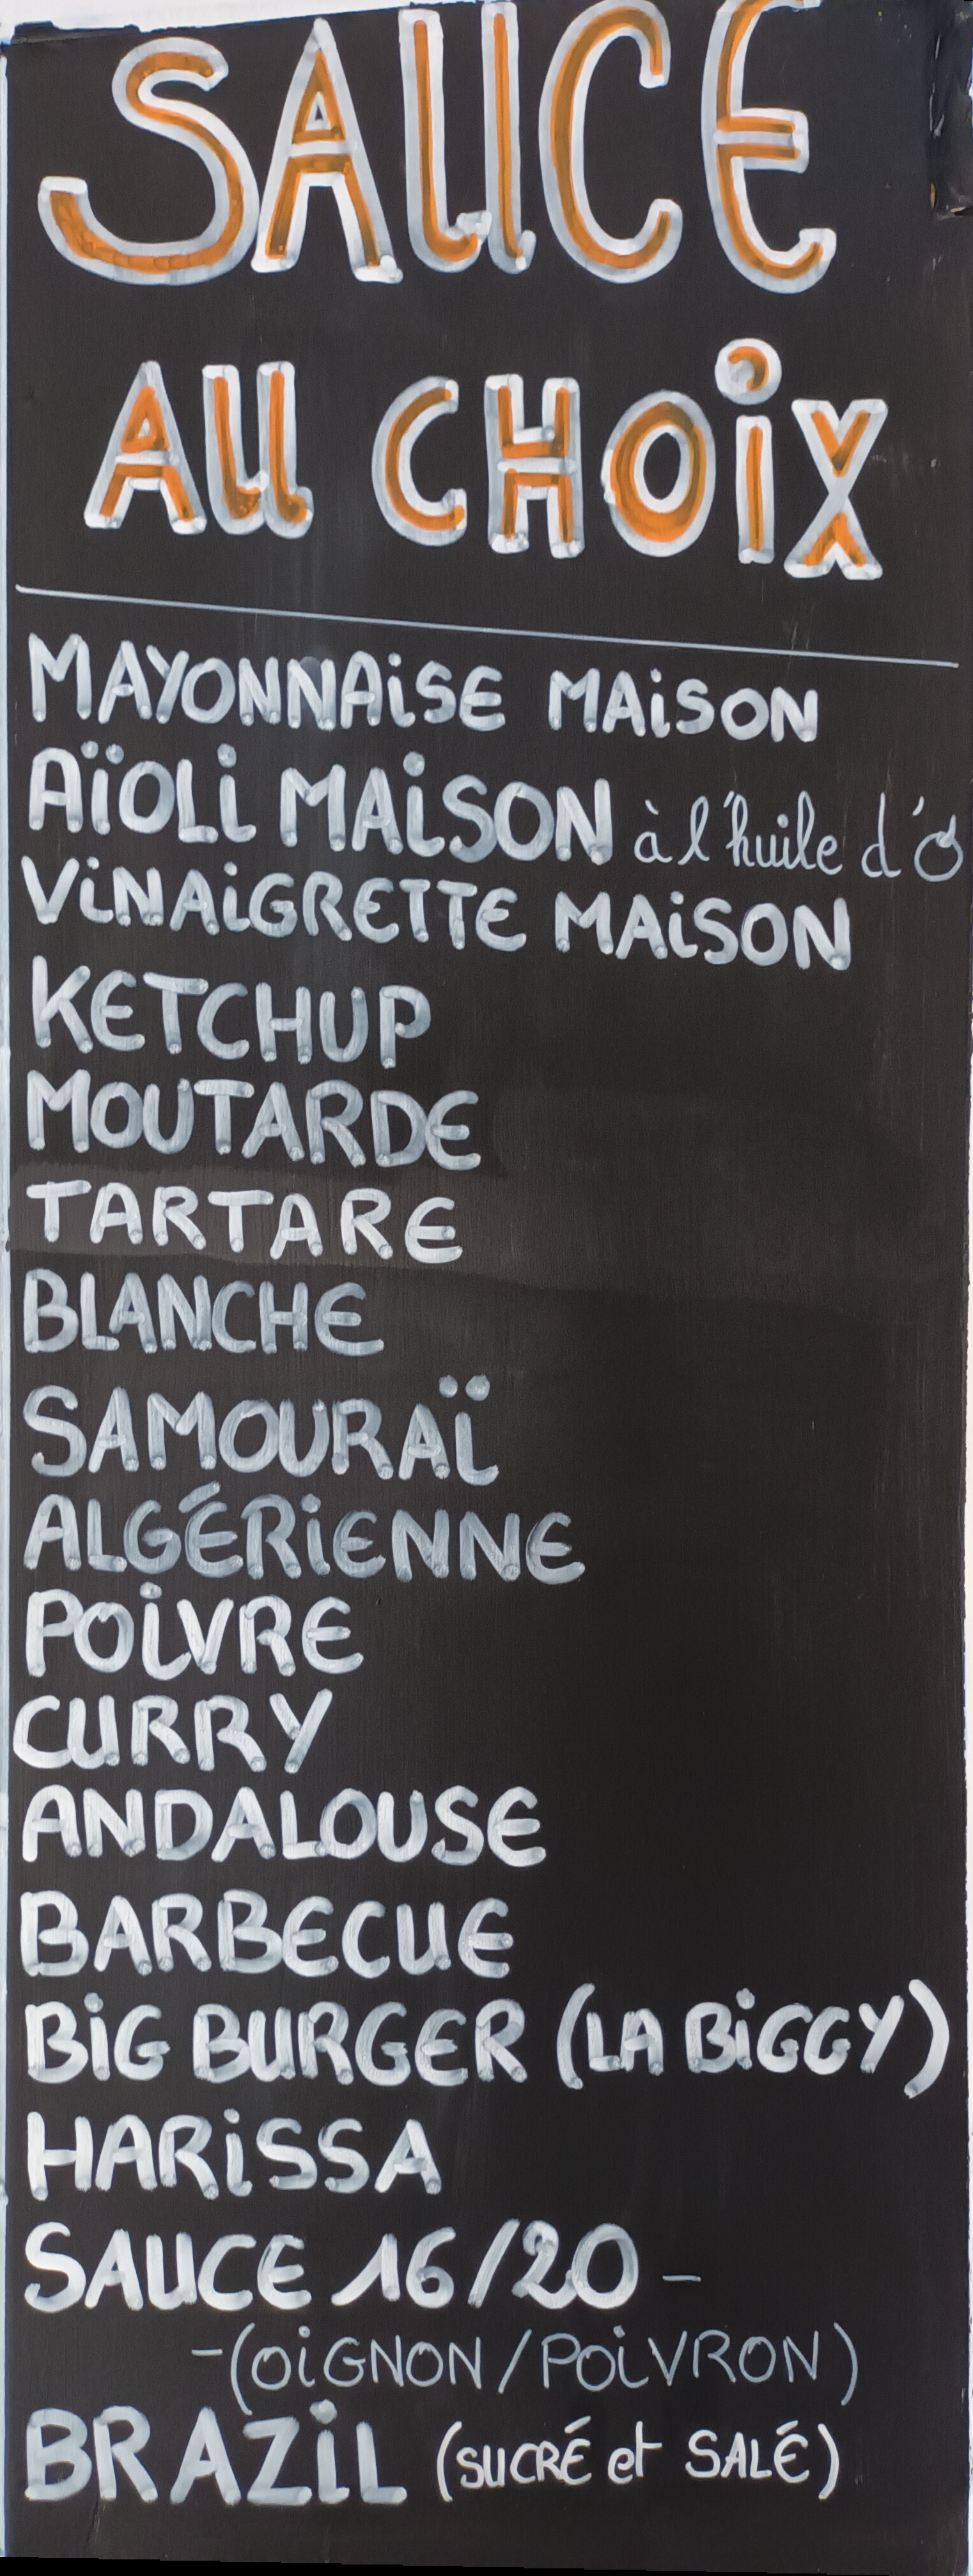 SAUCE
AU CHOIX
MAYONNAISE MAISON
AÏOLI MAISON à l'huile d'O
VINAIGRETTE MAISON
KETCHUP
MOUTARDE
TARTARE
BLANCHE
SAMOURAÏ
ALGÉRIENNE
POIVRE
CURRY
ANDALOUSE
BARBECUE
BIG BURGER (LA BIGGY)
HARISSA
SAUCE 16/20 -
-(OIGNON/POIVRON)
BRAZIL (SUCRÉ et SALÉ)